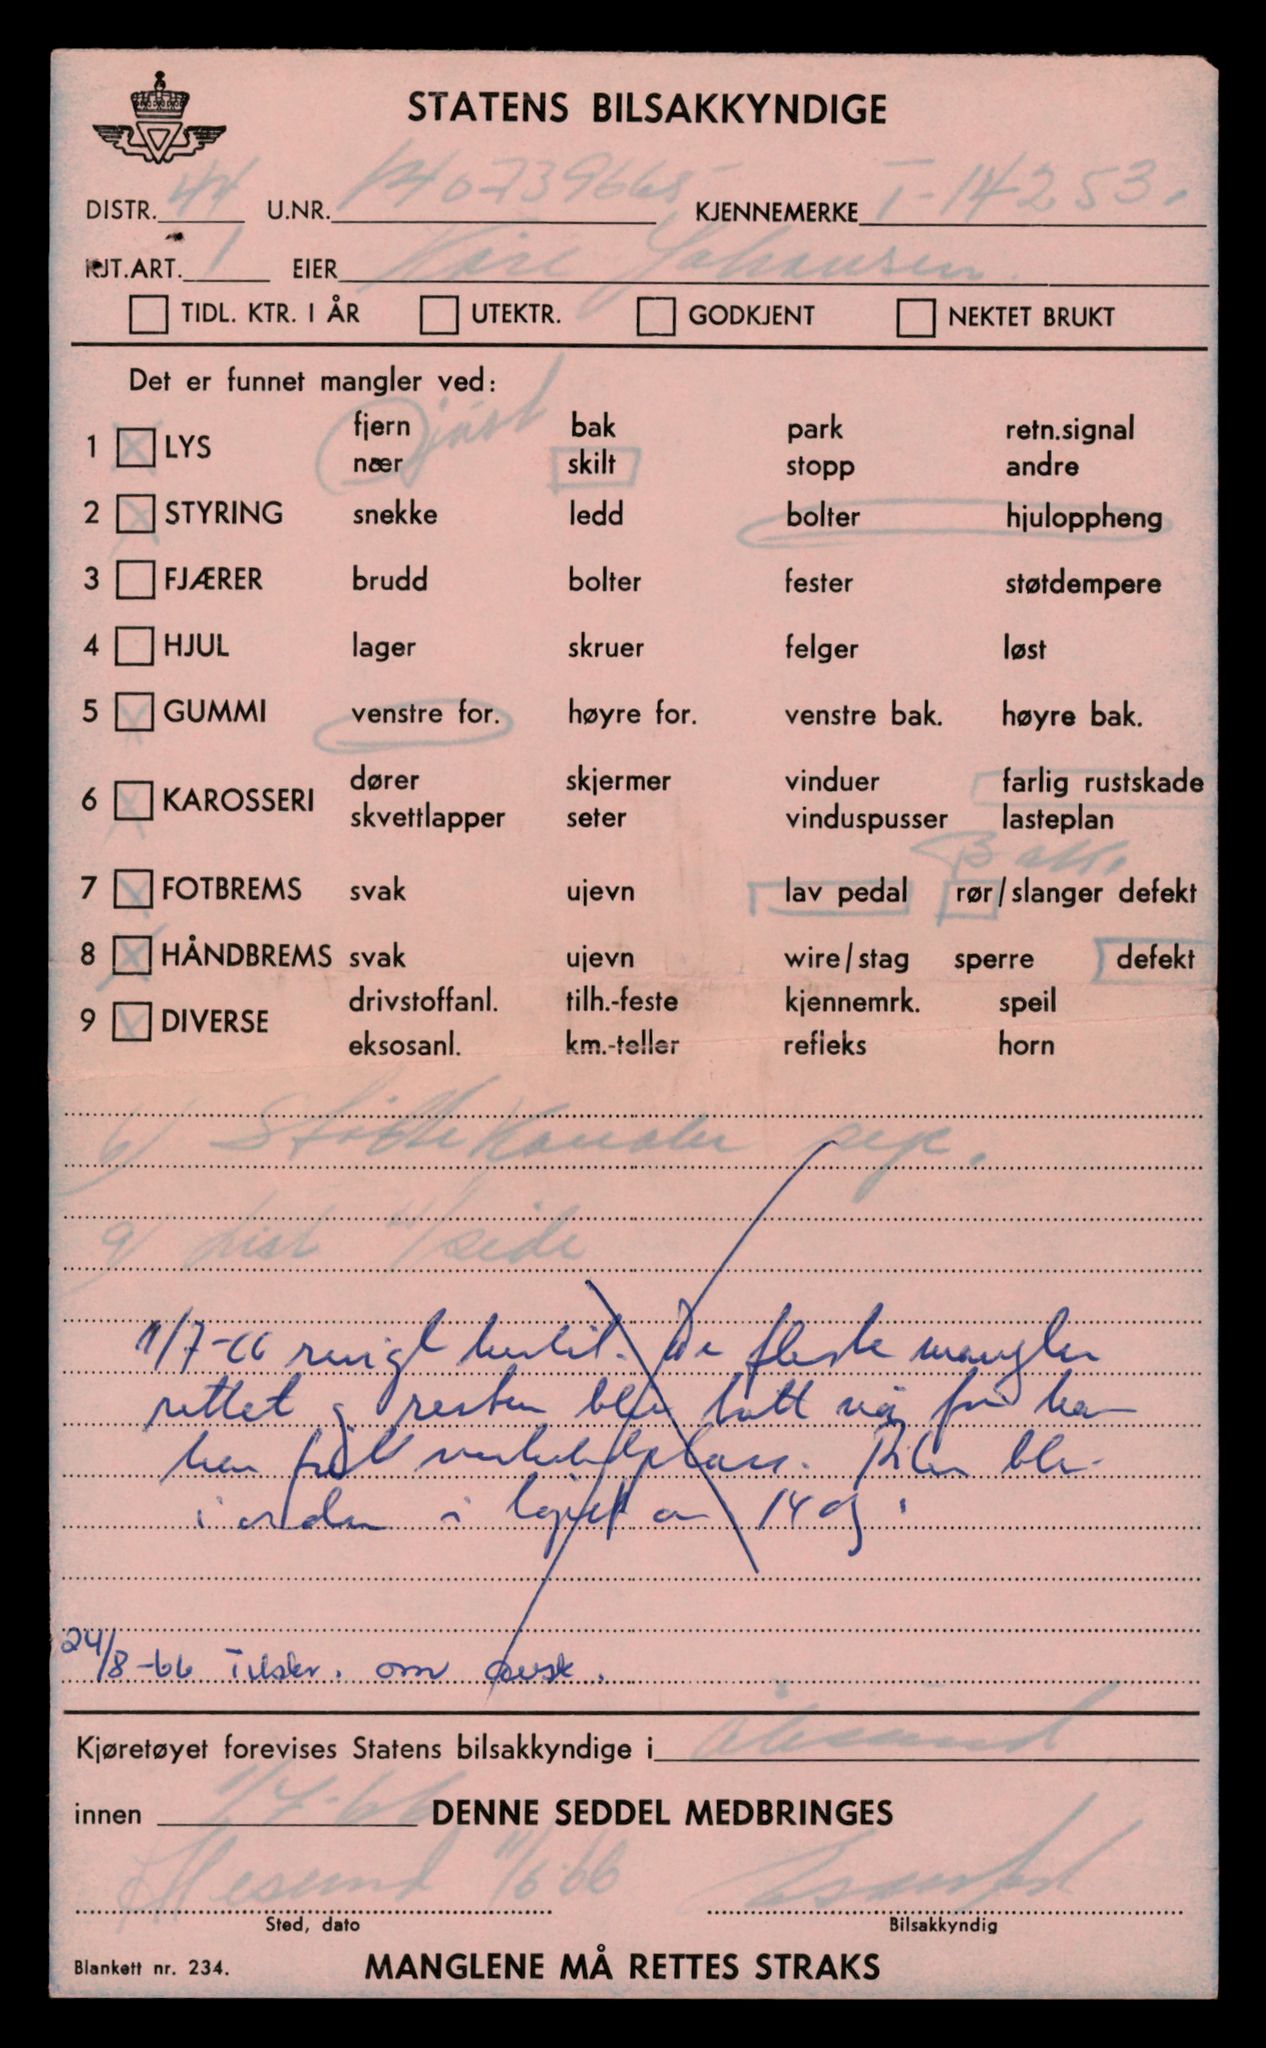 STATENS BILSAKKYNDIGE
DISTR. 44 U.NR. KJENNEMERKE T-14253.
KJT.ART. 1 EIER Kåre Johansen
TIDL. KTR. I ÅR UTEKTR. GODKJENT NEKTET BRUKT
Det er funnet mangler ved:
just
fjern bak park retn.signal
1 X LYS
nær skilt stopp andre
2 X STYRING snekke ledd bolter hjuloppheng
3 FJÆRER brudd bolter fester støtdempere
4 HJUL lager skruer felger løst
5 X GUMMI venstre for. høyre for. venstre bak. høyre bak.
dører skjermer vinduer farlig rustskade
6 X KAROSSERI
skvettlapper seter vinduspusser lasteplan
7 X FOTBREMS svak ujevn lav pedal rør/slanger defekt
8 X HÅNDBREMS svak ujevn wire/stag sperre defekt
drivstoffanl. tilh.-feste kjennemrk. speil
9 X DIVERSE
eksosanl. km.-teller refleks horn
6)
9) list side
11/7-66 De fleste mangler
rettet og resten ble tatt nå for han
Bilen ble
i orden i løpet av 14 dg.
24/8-66 Tilskr. om avsk.
Kjøretøyet forevises Statens bilsakkyndige i Ålesund
innen 1/7-66 DENNE SEDDEL MEDBRINGES
Ålesund 11/6 66
Sted, dato Bilsakkyndig
Blankett nr. 234. MANGLENE MÅ RETTES STRAKS